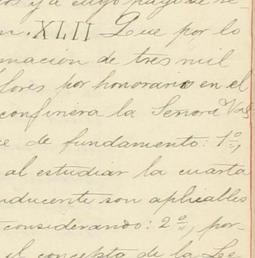 os y a cuyo pago de re-
n. XLII Que por lo
mación de tres mil
lores por honorario en el
confiriera la Señora
e de fundamento: 1º,
al estudiar la cuarta
nducente son aplicables
considerando: 2º, por-
el concepto de la Se